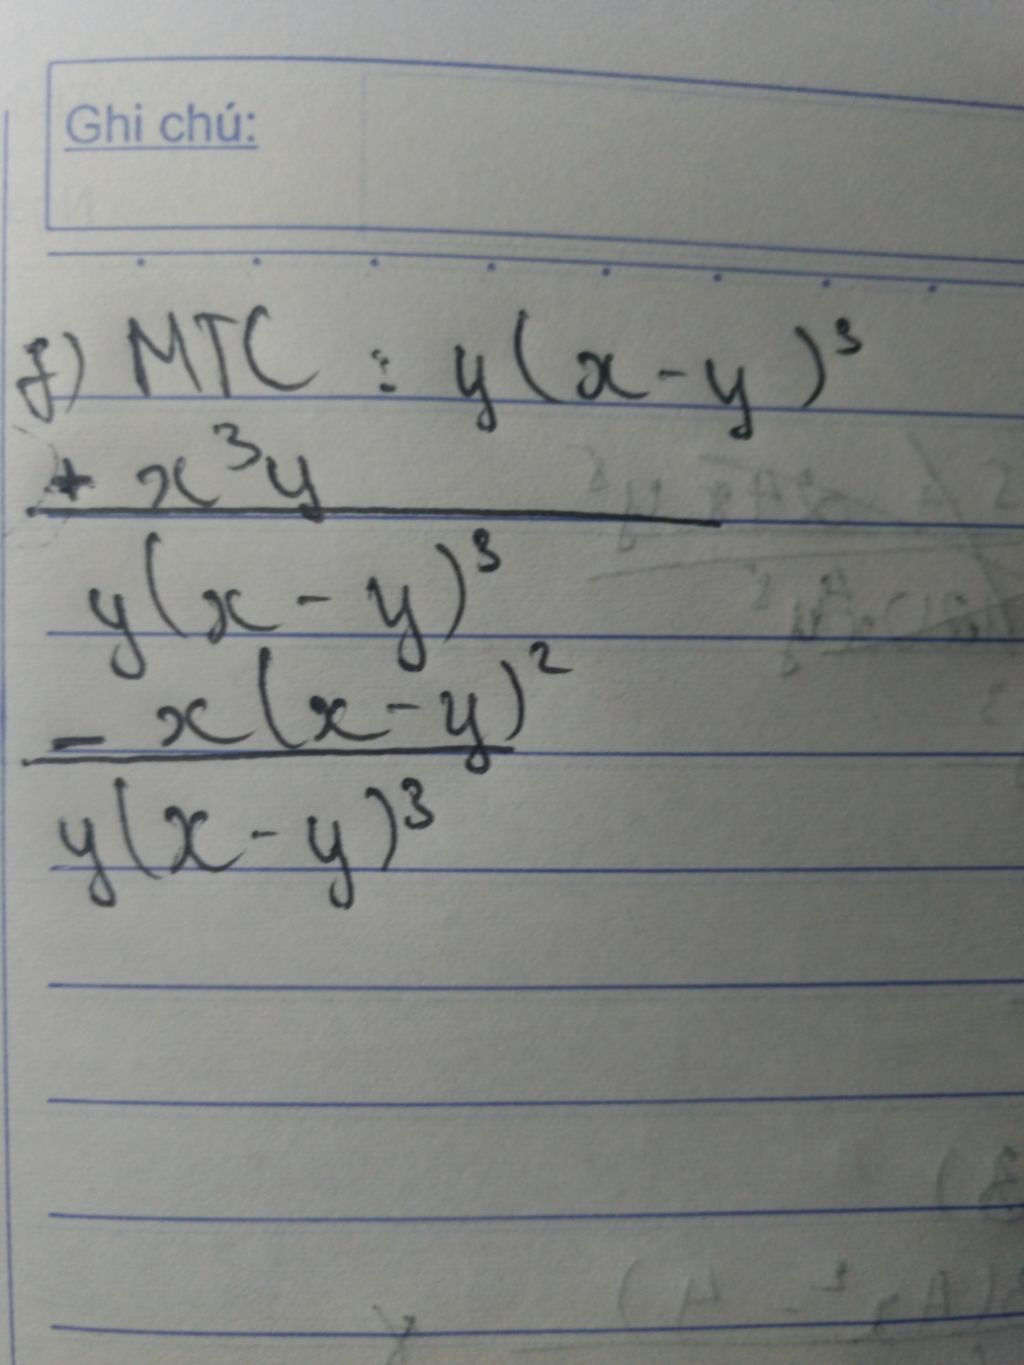 Ghi chú:
f) MTC : y(x-y)³
+ x³y
y(x-y)³
- x(x-y)²
y(x-y)³